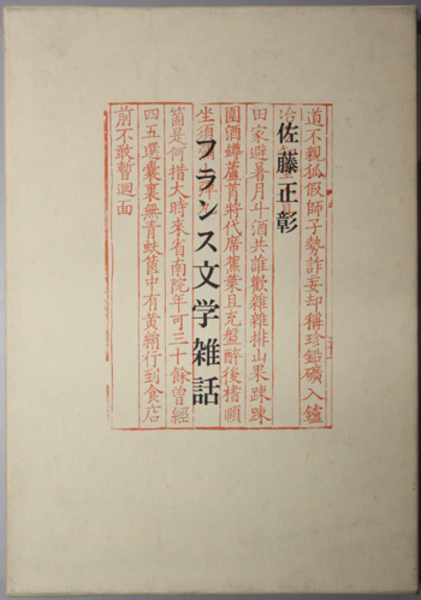 道不親狐假師子勢詐妄却稱珍鉛礦入鑪
冶
佐藤正彰
田家避暑月斗酒共誰歡雜雜排山果踈踈
圍酒罇蘆莦將代席蕉葉且充盤醉後榰頤
坐須
フランス文学雑話
箇是何措大時來省南院年可三十餘曾經
四五選囊裏無青蚨篋中有黃絹行到食店
前不敢暫迴面